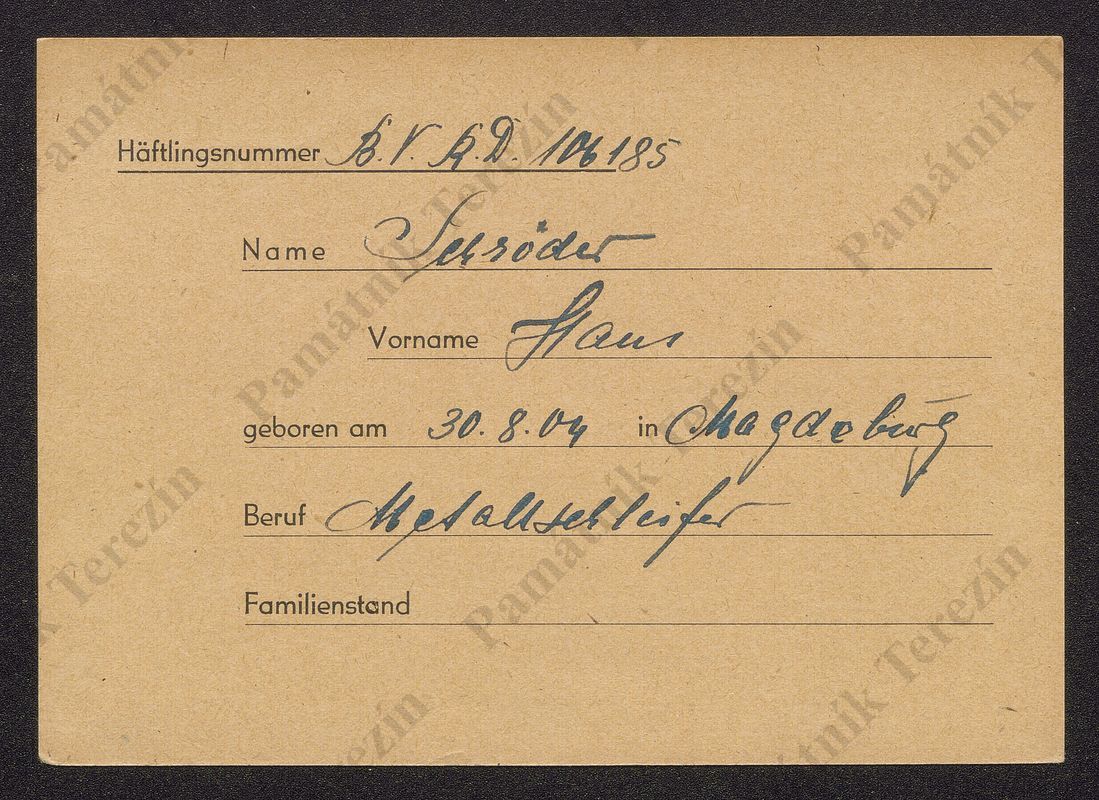 Häftlingsnummer B.V. R.D. 106185
Name Schröder
Vorname Hans
geboren am 30.8.04 in Magdeburg
Beruf Metallschleifer
Familienstand
Památník Terezín